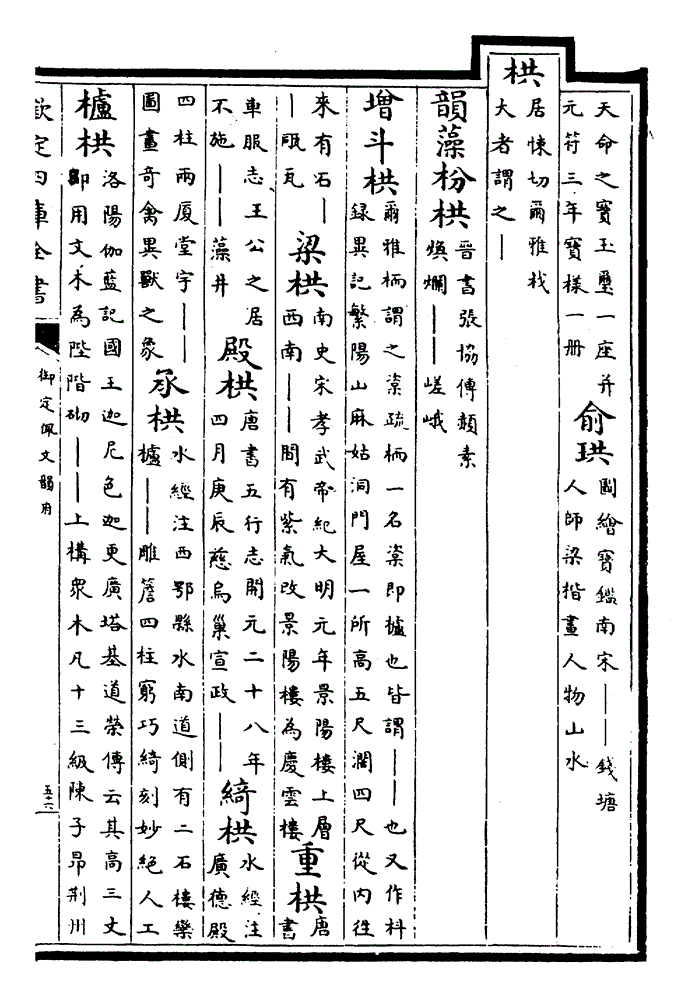 天命之寳玉璽一座并
元符三年寳樣一册
俞珙
圖繪寳鑑南宋——錢塘
人師梁楷畫人物山水
栱
居悚切爾雅杙
大者謂之—
韻藻枌栱
晉書張協傳頳素
煥爛——嵯峨
增斗栱
爾雅栭謂之楶疏栭一名楶即櫨也皆謂——也又作枓
録異記繁陽山麻姑洞門屋一所高五尺濶四尺從内徃
來有石—
—瓪瓦
梁栱
南史宋孝武帝紀大明元年景陽樓上層
西南——間有紫氣改景陽樓為慶雲樓
重栱
唐
書
車服志王公之居
不施——藻井
殿栱
唐書五行志開元二十八年
四月庚辰慈烏巢宣政——
綺栱
水經注
廣德殿
四柱兩厦堂宇——
圖畫奇禽異獸之象
承栱
水經注西鄂縣水南道側有二石樓欒
櫨——雕簷四柱窮巧綺刻妙絶人工
櫨栱
洛陽伽藍記國王迦尼色迦更廣塔基道榮傳云其高三丈
卽用文木為陛階砌——上構衆木凡十三級陳子昻荆州
欽定四庫全書
御定佩文韻府
五十六